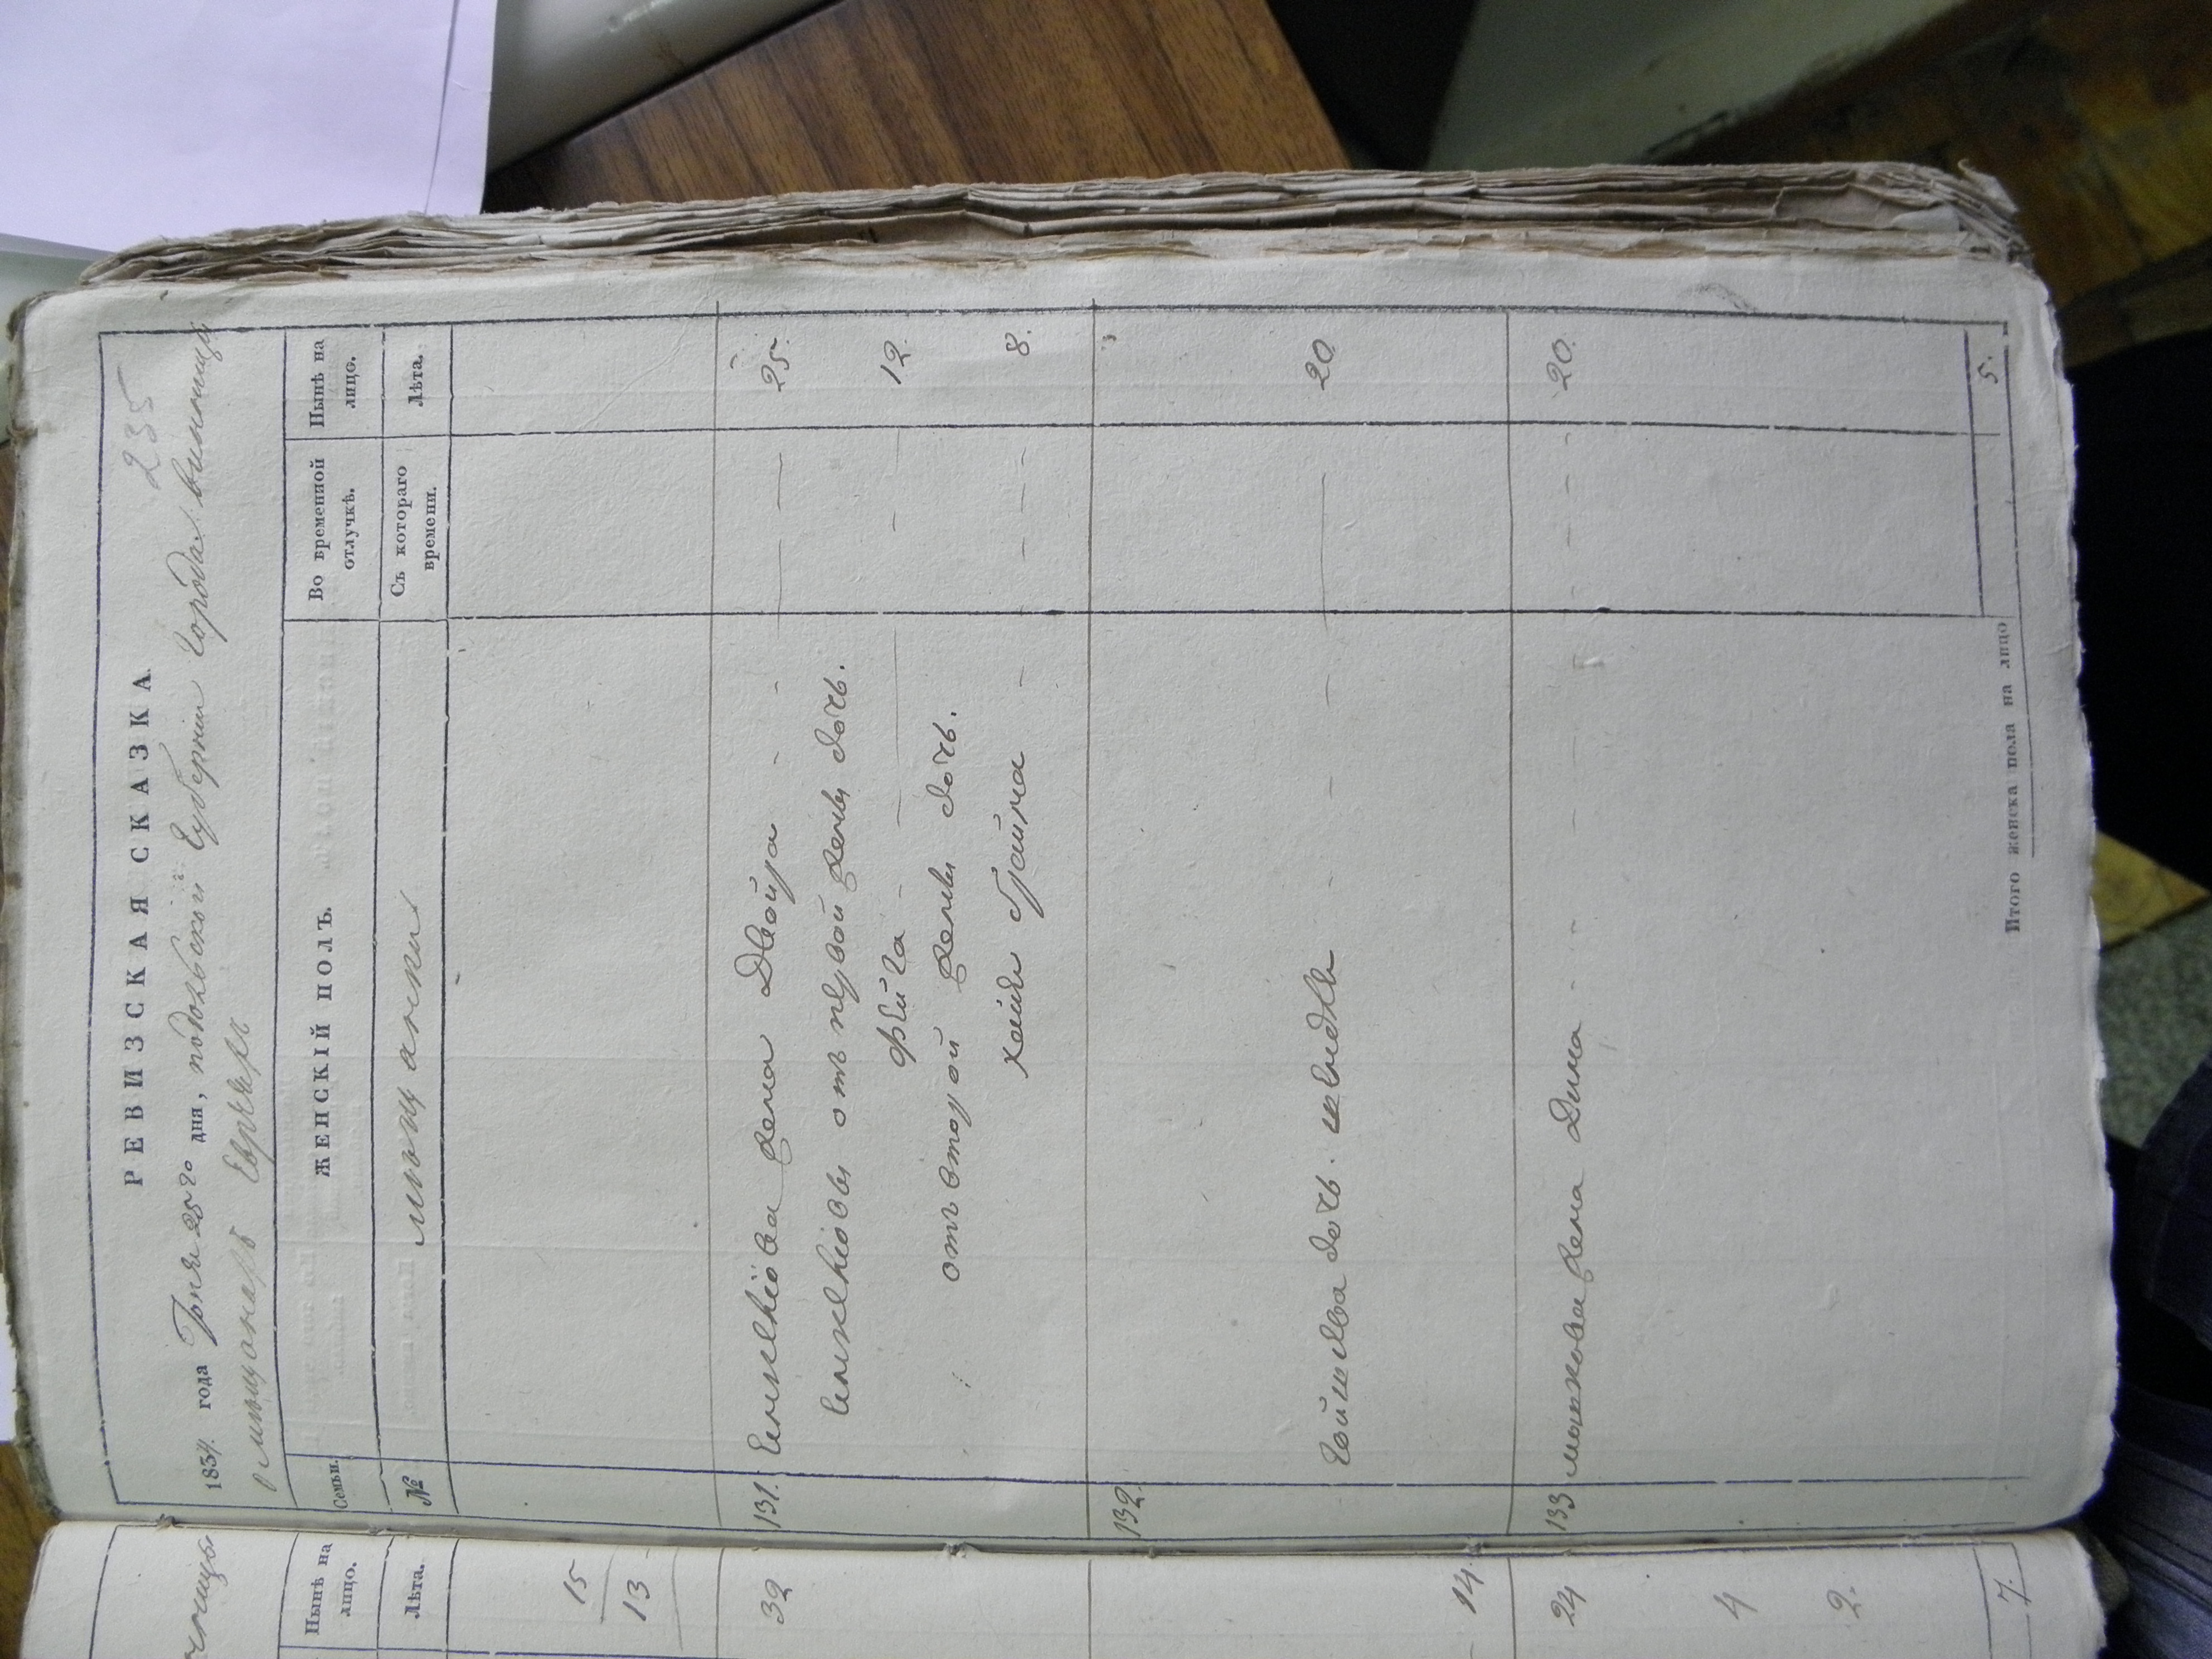 235
РЕВИЗСКАЯ СКАЗКА.
1834. года Іюня 25го дня, подольской Губерніи Города винницы
о мѣщанахъ Евреяхъ
Семьи.
ЖЕНСКІЙ ПОЛЪ.
Во временной отлучкѣ.
Нынѣ на лицо.
№
мѣщанки
Съ котораго времени.
Лѣта.
131. жена Двойра - - — — 25.
отъ первой жены дочь.
Фейга - — — - 12.
отъ второй жены дочь.
хайя - - - - 8.
132.
дочь. шейндля - - — 20
133 мошкова жена Дина - - - - - 20.
Итого женска пола на лицо 5.
Нынѣ на лицо.
Лѣта.
15
13
32
14.
24
4
2.
7.